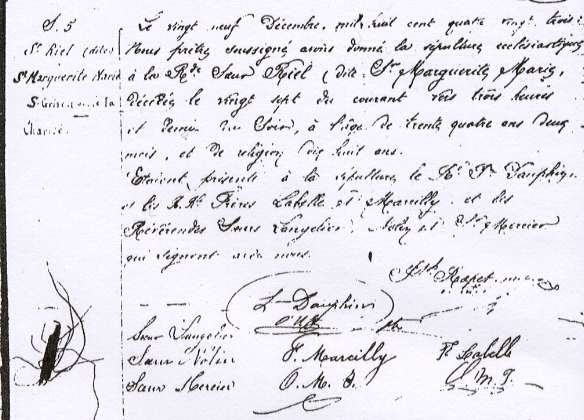 S. 5
Sr Riel (dite
Sr Marguerite Marie
Charité.
Le vingt neuf Décembre, mil huit cent quatre vingt trois.
Nous prêtre soussigné avons donné la sépulture ecclésiastique
à la Rde Sœur Riel (dite Sr Marguerite Marie,
décédée le vingt sept du courant vers trois heures
et demie du Soir, à l'âge de trente quatre ans deux
mois, et de religion dix huit ans.
Etaient présents à la sépulture le Rd Pr Dauphin
et les R.Rds Frères Labelle et Marcilly et des
Révérendes Sœurs Langelier, Nolin et Sr Mercier
qui signent avec nous.
Jph Rapet
L. Dauphin
ptre
Sœur Langelier
Sœur Nolin F. Marcilly F. Labelle
Sœur Mercier O. M. I. O. M. I.